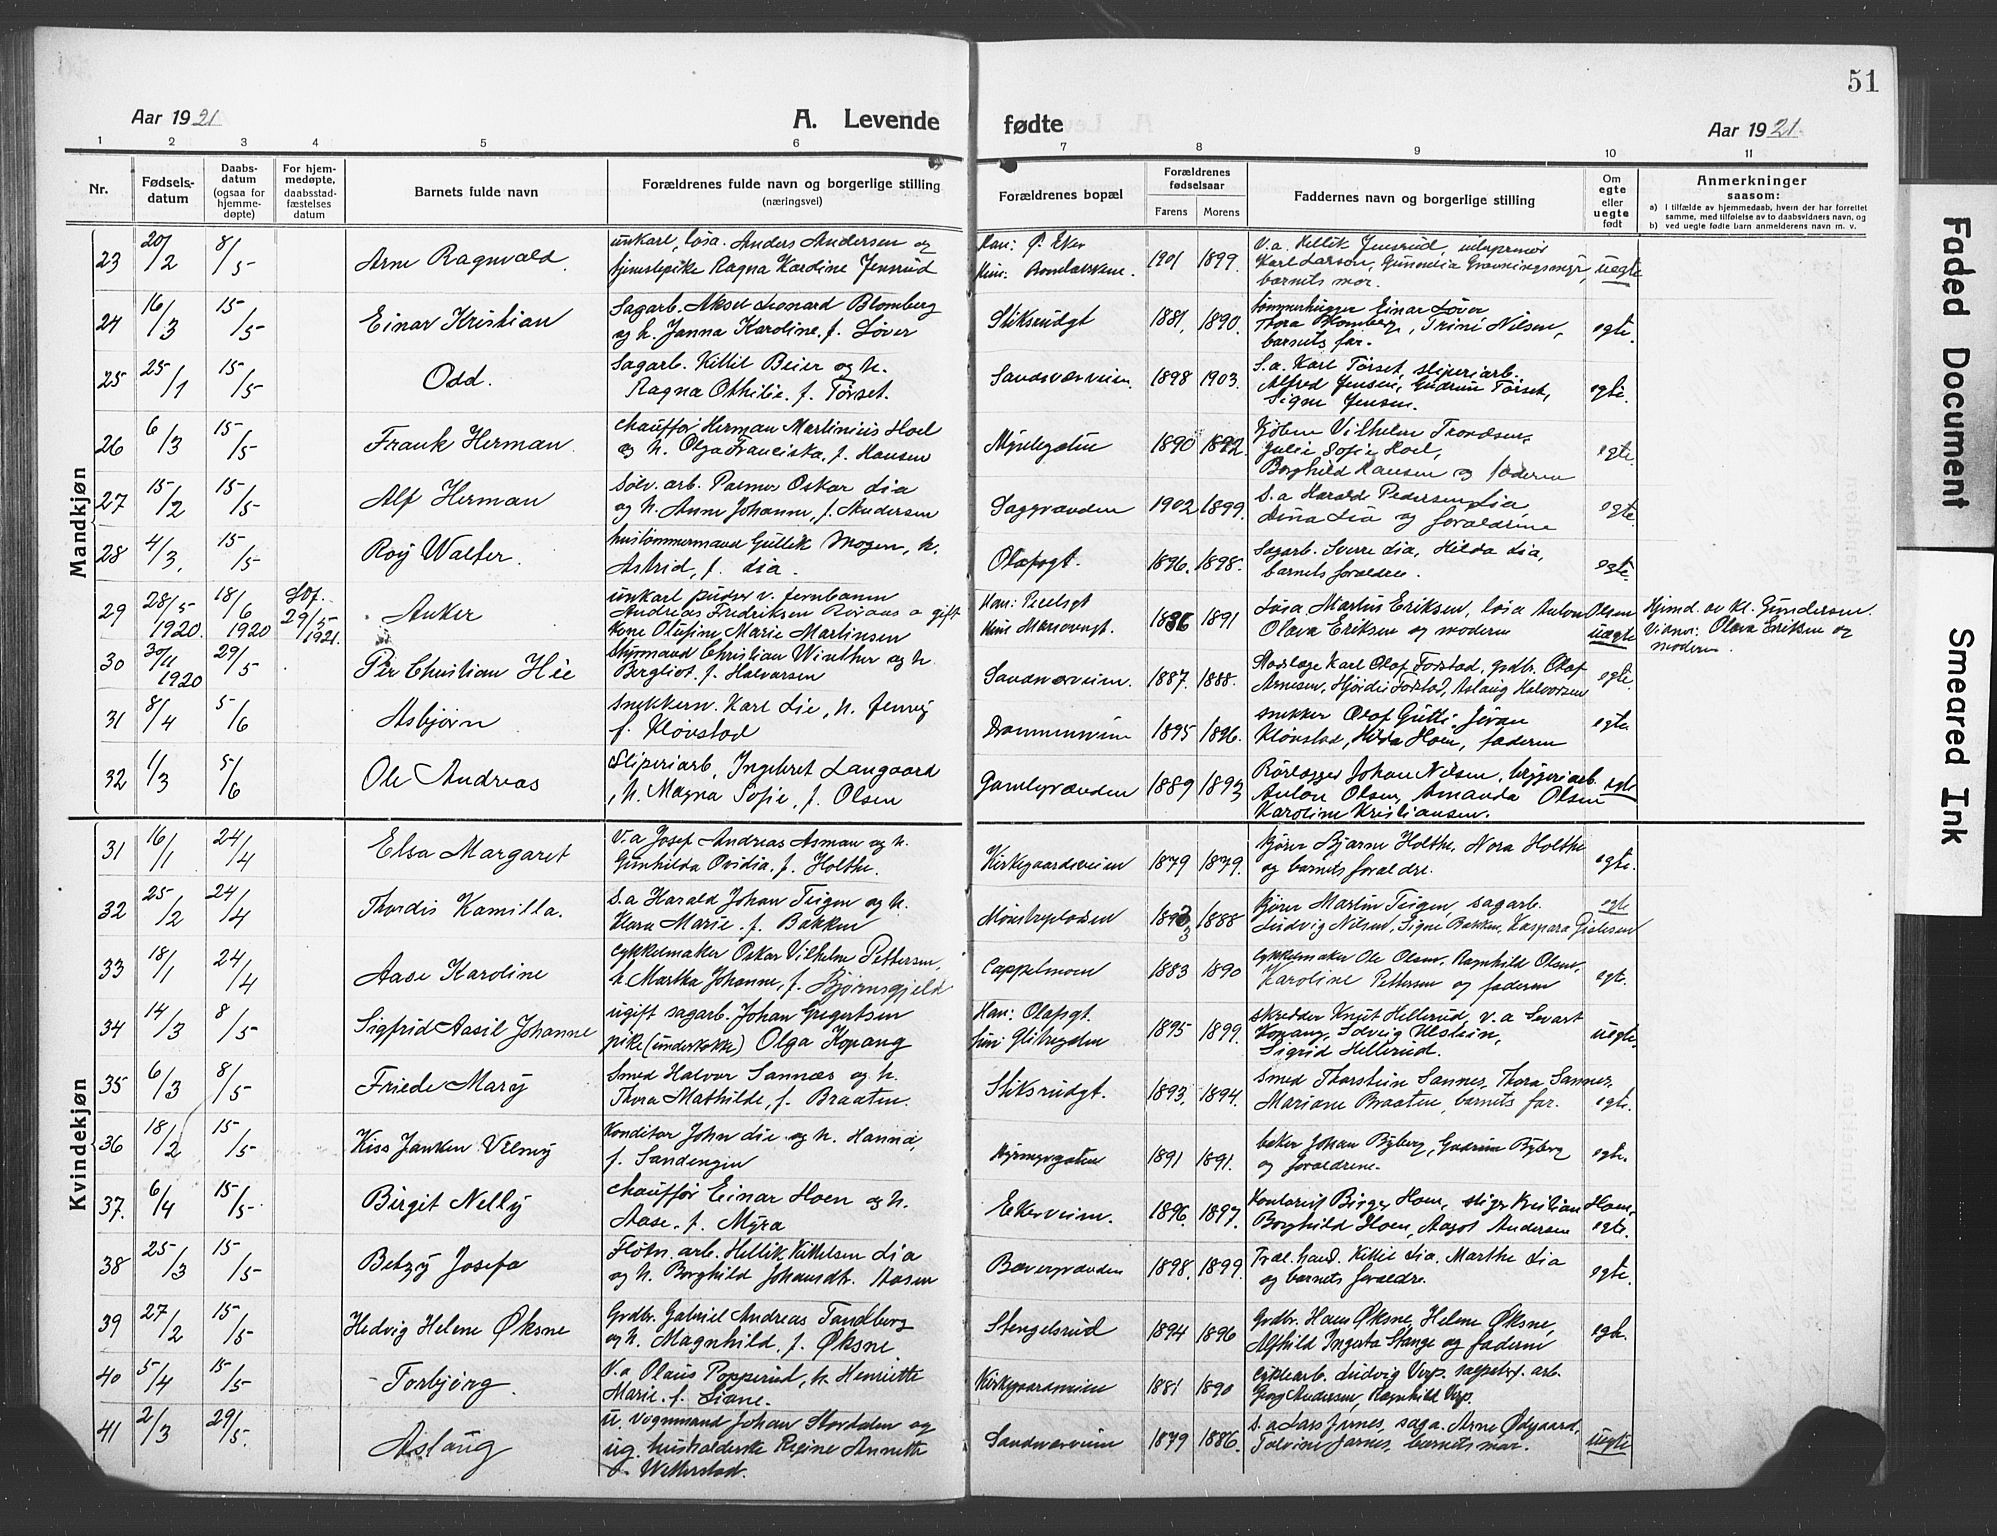 51
Aar 1921
A. Levende fødte
Aar 1921
1 2 3 4 5 6 7 8 9 10 11
Nr.
Fødsels-
datum
Daabs-
datum
(ogsaa for
hjemme-
døpte)
For hjem-
medøpte,
daabsstad-
fæstelses
datum
Barnets fulde navn
Forældrenes fulde navn og borgerlige stilling
(næringsvei)
Forældrenes bopæl
Forældrenes
fødselsaar
Farens Morens
Faddernes navn og borgerlige stilling
Om
egte
eller
uegte
født
Anmerkninger
saasom:
a) I tilfælde av hjemmedaab, hvem der har forrettet
samme, med tilføielse av to daabsvidners navn, og
b) ved uegte fødte barn anmelderens navn m. v.
Mandkjøn
23 20/2 8/5 Arne Ragnvald
unkarl, løsa. Anders Andersen og
tjenestepike Ragna Kardine Jensrud
Han: Ø. Eker
1901 1899.
V.a. Kittil Jensrud,
Karl Larsen, Gunnelia
barnets mor.
uegte
24 16/3 15/5 Einar Kristian
Sagarb. Aksel Leonard Blomberg
og h. Janna Karoline, f. Løver
Stiksrudgt
1881, 1890.
tømmerhugger Einar Løver
Thora Blomberg, Trine Nilsen,
barnets far.
egte.
25 25/1 15/5 Odd.
Sagarb. Kittil Beier og h.
Ragna Othilie. f. Tørset.
Sandsværveien.
1898 1903.
S.a. Karl Tørset, sliperiarb.
Alfred Jensen, Gudrun Tørset,
Signe Jensen.
egte.
26 6/3 15/5 Frank Herman
chauffør Herman Martinius Hoel
og h. Olga Franciska, f. Hansen
Myntgatin
1890 1892.
Kjøbm Vilhelm Trondsen,
Julie Sofie Hoel,
Borghild Hansen og faderen
egte.
27 15/2 15/5 Alf Herman
Sølv. arb. Palmer Oskar Lia
og h. Anne Johanne, f. Andersen
Saggrænden
1902 1899.
S.a Harald Pedersen Lia,
Dina Lia og forældrene
egte.
28 4/3. 15/5 Roy Walter.
hustømmermand Gullik Mogen, h.
Astrid, f. Lia.
Olafsgt.
1896. 1898.
Sagarb. Sverre Lia, Hilda Lia,
barnets forældre.
egte.
29 28/5 1920. 18/6 1920 Stf. 29/5 1921. Anker
unkarl pudser v. jernbanen
Andreas Fredriksen Roraas og gift
kone Olufine Marie Martinsen
Han: Peckelsgt
1886 1891
Løsa Martin Eriksen, løsa Anton Olsen
Olava Eriksen og moderen
uægte
Hjemd. av kl. Gundersen
Vidner: Olava Eriksen og
moderen.
30 30/11 1920 29/5 Per Christian Hie
Styrmand Christian Winther og h.
Bergliot. f. Halvorsen
Sandsværveien.
1887. 1888.
Stadslæge Karl Olaf Forstad, grdbr. Olaf
Arnesen, Hjørdis Forstad, Aslaug Halvorsen
egte.
31 8/4 5/6 Asbjørn
snekkerm. Karl Lie, h. Jenny
f. Kløvstad
Drammensveien
1895 1896.
snekker Olaf Gutti, Johan
Kløvstad, Hilda Hoen, faderen
egte.
32 1/3 5/6 Ole Andreas
Sliperiarb, Ingebret Langaard
, h. Magna Sofie, f. Olsen
Gamlegrænden
1889 1893
Rørlægger Johan Nilsen, bryggeriarb.
Anton Olsen, Amanda Olsen
Karoline Kristiansen.
egte
Kvindekjøn
31 16/1 24/4 Elsa Margaret
V.a Josef Andreas Asman og h.
Gunhilda Ovidia. f. Holthe.
Kirkegaardsveien
1879 1879.
kjører Bjarne Holthe, Nora Holthe
og barnets forældre.
egte.
32 25/2 24/4 Thordis Kamilla.
S.a Harald Johan Teigen og h.
Klara Marie. f. Bakken
Mønstrepladsen
1893 1888
kjører Martin Teigen, sagarb.
Ludvig Nilsen, Signe Bakken, Kaspara
egte
33 18/1 24/4 Aase Karoline
cykkelmaker Oskar Vilhelm Pettersen,
h. Martha Johanne, f. Bjørnsgjeld
Cappelmoen
1883 1890
cykkelmaker Ole Olsen, Ragnhild Olsen,
Karoline Pettersen og faderen
egte.
34 14/3 8/5 Sigfrid Aasil Johanne
ugift sagarb. Johan Gregertsen
pike (underkokke) Olga Kopang
Han: Olafsgt.
hun Glitregden
1895 1899.
skrædder Knut Hellerud, v.a Sevart
Kopang, Solveig Ulstein,
Sigrid Hellerud.
uegte.
35 6/3 8/5 Friede Mary
Smed Halvor Sannæs og h.
Thora Mathilde, f. Braaten.
Stiksrudgt.
1893. 1894.
Smed Thorstein Sannes, Thora Sannes,
Mariane Braaten, barnets far.
egte.
36 18/2 15/5 Kiss Janken Vilmy
Konditor John Lie og h. Hanna,
f. Sandengen
Hyrnegaten
1891 1891.
baker Johan Byberg, Gudrun Byberg
og forældrene.
egte.
37. 6/4 15/5 Birgit Nelly
chauffør Einar Hoen og h.
Aase. f. Myra
Ekerveien.
1896. 1897.
Kontorist Birger Hoen, stiger Kristian Hoen,
Borghild Hoen, Aagot Andersen
egte.
38 25/3 15/5 Betzy Josefa
Fløtn. arb. Hellik Kittelsen Lia
og h. Borghild Johansdt. Aasen
Bævergrænden
1898. 1899.
Træl. hand. Kittil Lia. Marthe Lia
og barnets forældre.
egte.
39 27/2 15/5 Hedvig Helene Øksne
Grdbr. Gabriel Andreas Tandberg
og h. Magnhild, f. Øksne
Stengelsrud
1894 1896
Grdbr. Hans Øksne, Helene Øksne,
Alfhild Ingerta Stange og faderen
egte.
40 5/4 15/5 Torbjørg.
V.a Olaus Popperud, h. Henriette
Marie. f. Liane.
Kirkegaardsveien
1881 1890
cyklearb. Ludvig Verp. salpeterf. arb.
Georg Andersen, Ragnhild Verp.
41 2/3 29/5. Aslaug
u. vognmand Johan Stordalen og
ug. husholderske Regine Annette
f. Wetterstad.
Sandsværveien
1879 1886.
S.a Lars Jarnes, sag a. Arne Ødegaard,
Tolvine Jarnes, barnets mor.
uegte
Faded Document
Smeared Ink